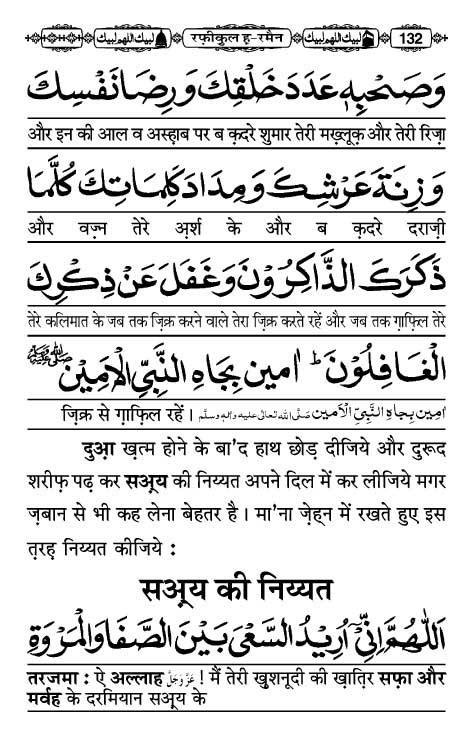 لبيك اللهم لبيك रफ़ीकुल ह-रमैन لبيك اللهم لبيك 132
وَصَحْبِهٖ عَدَدَ خَلْقِكَ وَرِضَا نَفْسِكَ
और इन की आल व अस्ह़ाब पर ब क़दरे शुमार तेरी मख़्लूक़ और तेरी रिज़ा
وَزِنَةَ عَرْشِكَ وَمِدَادَ كَلِمَاتِكَ كُلَّمَا
और वज़्न तेरे अ़र्श के और ब क़दरे दराज़ी
ذَكَرَكَ الذَّاكِرُوْنَ وَغَفَلَ عَنْ ذِكْرِكَ
तेरे कलिमात के जब तक ज़िक्र करने वाले तेरा ज़िक्र करते रहें और जब तक ग़ाफ़िल तेरे
الْغَافِلُوْنَ ؕ اٰمين بِجَاهِ النَّبِيِّ الْاَمِيْن ﷺ
ज़िक्र से ग़ाफ़िल रहें। اٰمِين بِجَاهِ النَّبِيِّ الْاَمين صَلَّى اللّٰه تعالٰى عليه واٰله وسلَّم
दुआ़ ख़त्म होने के बा'द हाथ छोड़ दीजिये और दुरूद
शरीफ़ पढ़ कर सअ़्य की निय्यत अपने दिल में कर लीजिये मगर
ज़बान से भी कह लेना बेहतर है। मा'ना ज़ेह्न में रखते हुए इस
त़रह़ निय्यत कीजिये :
सअ़्य की निय्यत
اَللّٰهُمَّ اِنِّيْٓ اُرِيْدُ السَّعْىَ بَيْنَ الصَّفَا وَالْمَرْوَةِ
तरजमा : ऐ अल्लाह عَزَّوَجَلَّ ! मैं तेरी ख़ुशनूदी की ख़ात़िर सफ़ा और
मर्वह के दरमियान सअ़्य के